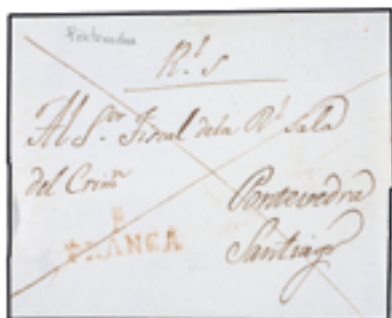 Pontevedra
R.l S
Al S.or Fiscal de la R.l Sala
del Crim.n
Pontevedra
FRANCA
Santiago